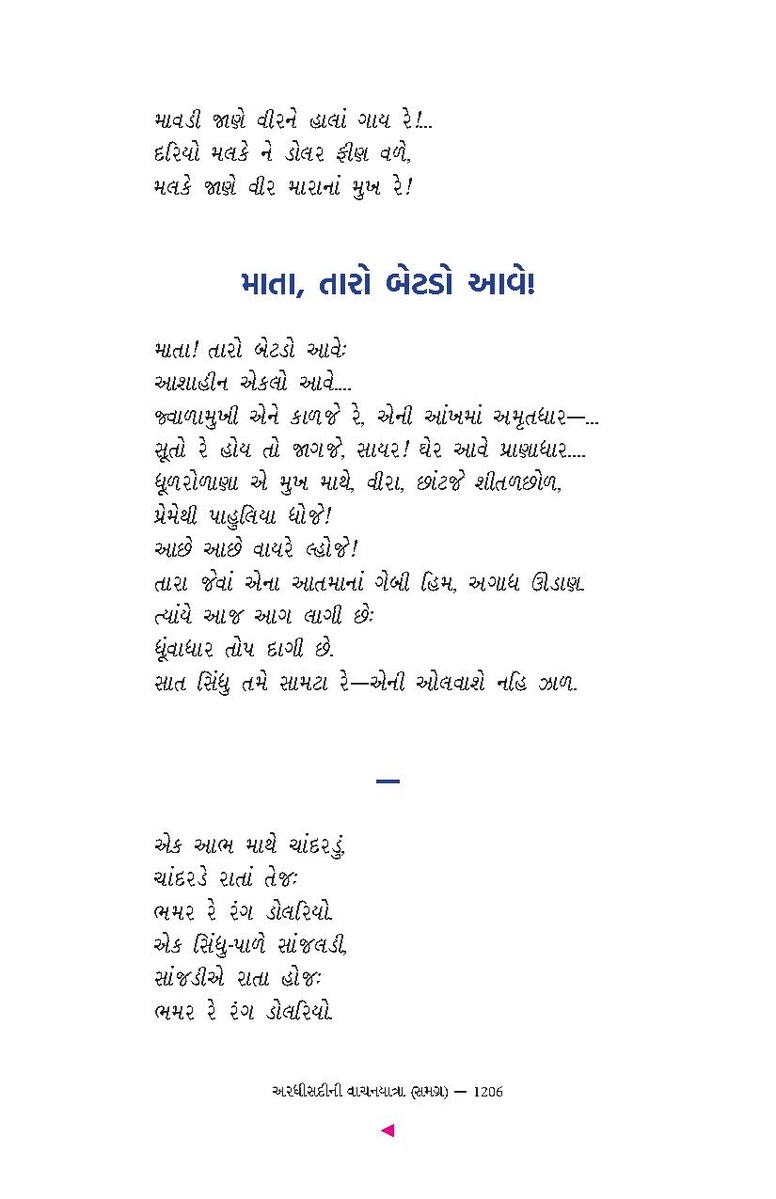 માવડી જાણે વીરને હાલાં ગાય રે!...
દરિયો મલકે ને ડોલર ફીણ વળે,
મલકે જાણે વીર મારાનાં મુખ રે!
માતા, તારો બેટડો આવે!
માતા! તારો બેટડો આવેઃ
આશાહીન એકલો આવે....
જ્વાળામુખી એને કાળજે રે, એની આંખમાં અમૃતધાર—...
સૂતો રે હોય તો જાગજે, સાયર! ઘેર આવે પ્રાણાધાર....
ધૂળરોળાણા એ મુખ માથે, વીરા, છાંટજે શીતળછોળ,
પ્રેમેથી પાહુલિયા ધોજે!
આછે આછે વાયરે લ્હોજે!
તારા જેવાં એના આતમાનાં ગેબી હિમ, અગાધ ઊંડાણ.
ત્યાંયે આજ આગ લાગી છેઃ
ધૂંવાધાર તોપ દાગી છે.
સાત સિંધુ તમે સામટા રે—એની ઓલવાશે નહિ ઝાળ.
—
એક આભ માથે ચાંદરડું,
ચાંદરડે રાતાં તેજઃ
ભમર રે રંગ ડોલરિયો.
એક સિંધુ-પાળે સાંજલડી,
સાંજડીએ રાતા હોજઃ
ભમર રે રંગ ડોલરિયો.
અરધીસદીની વાચનયાત્રા (સમગ્ર) — 1206